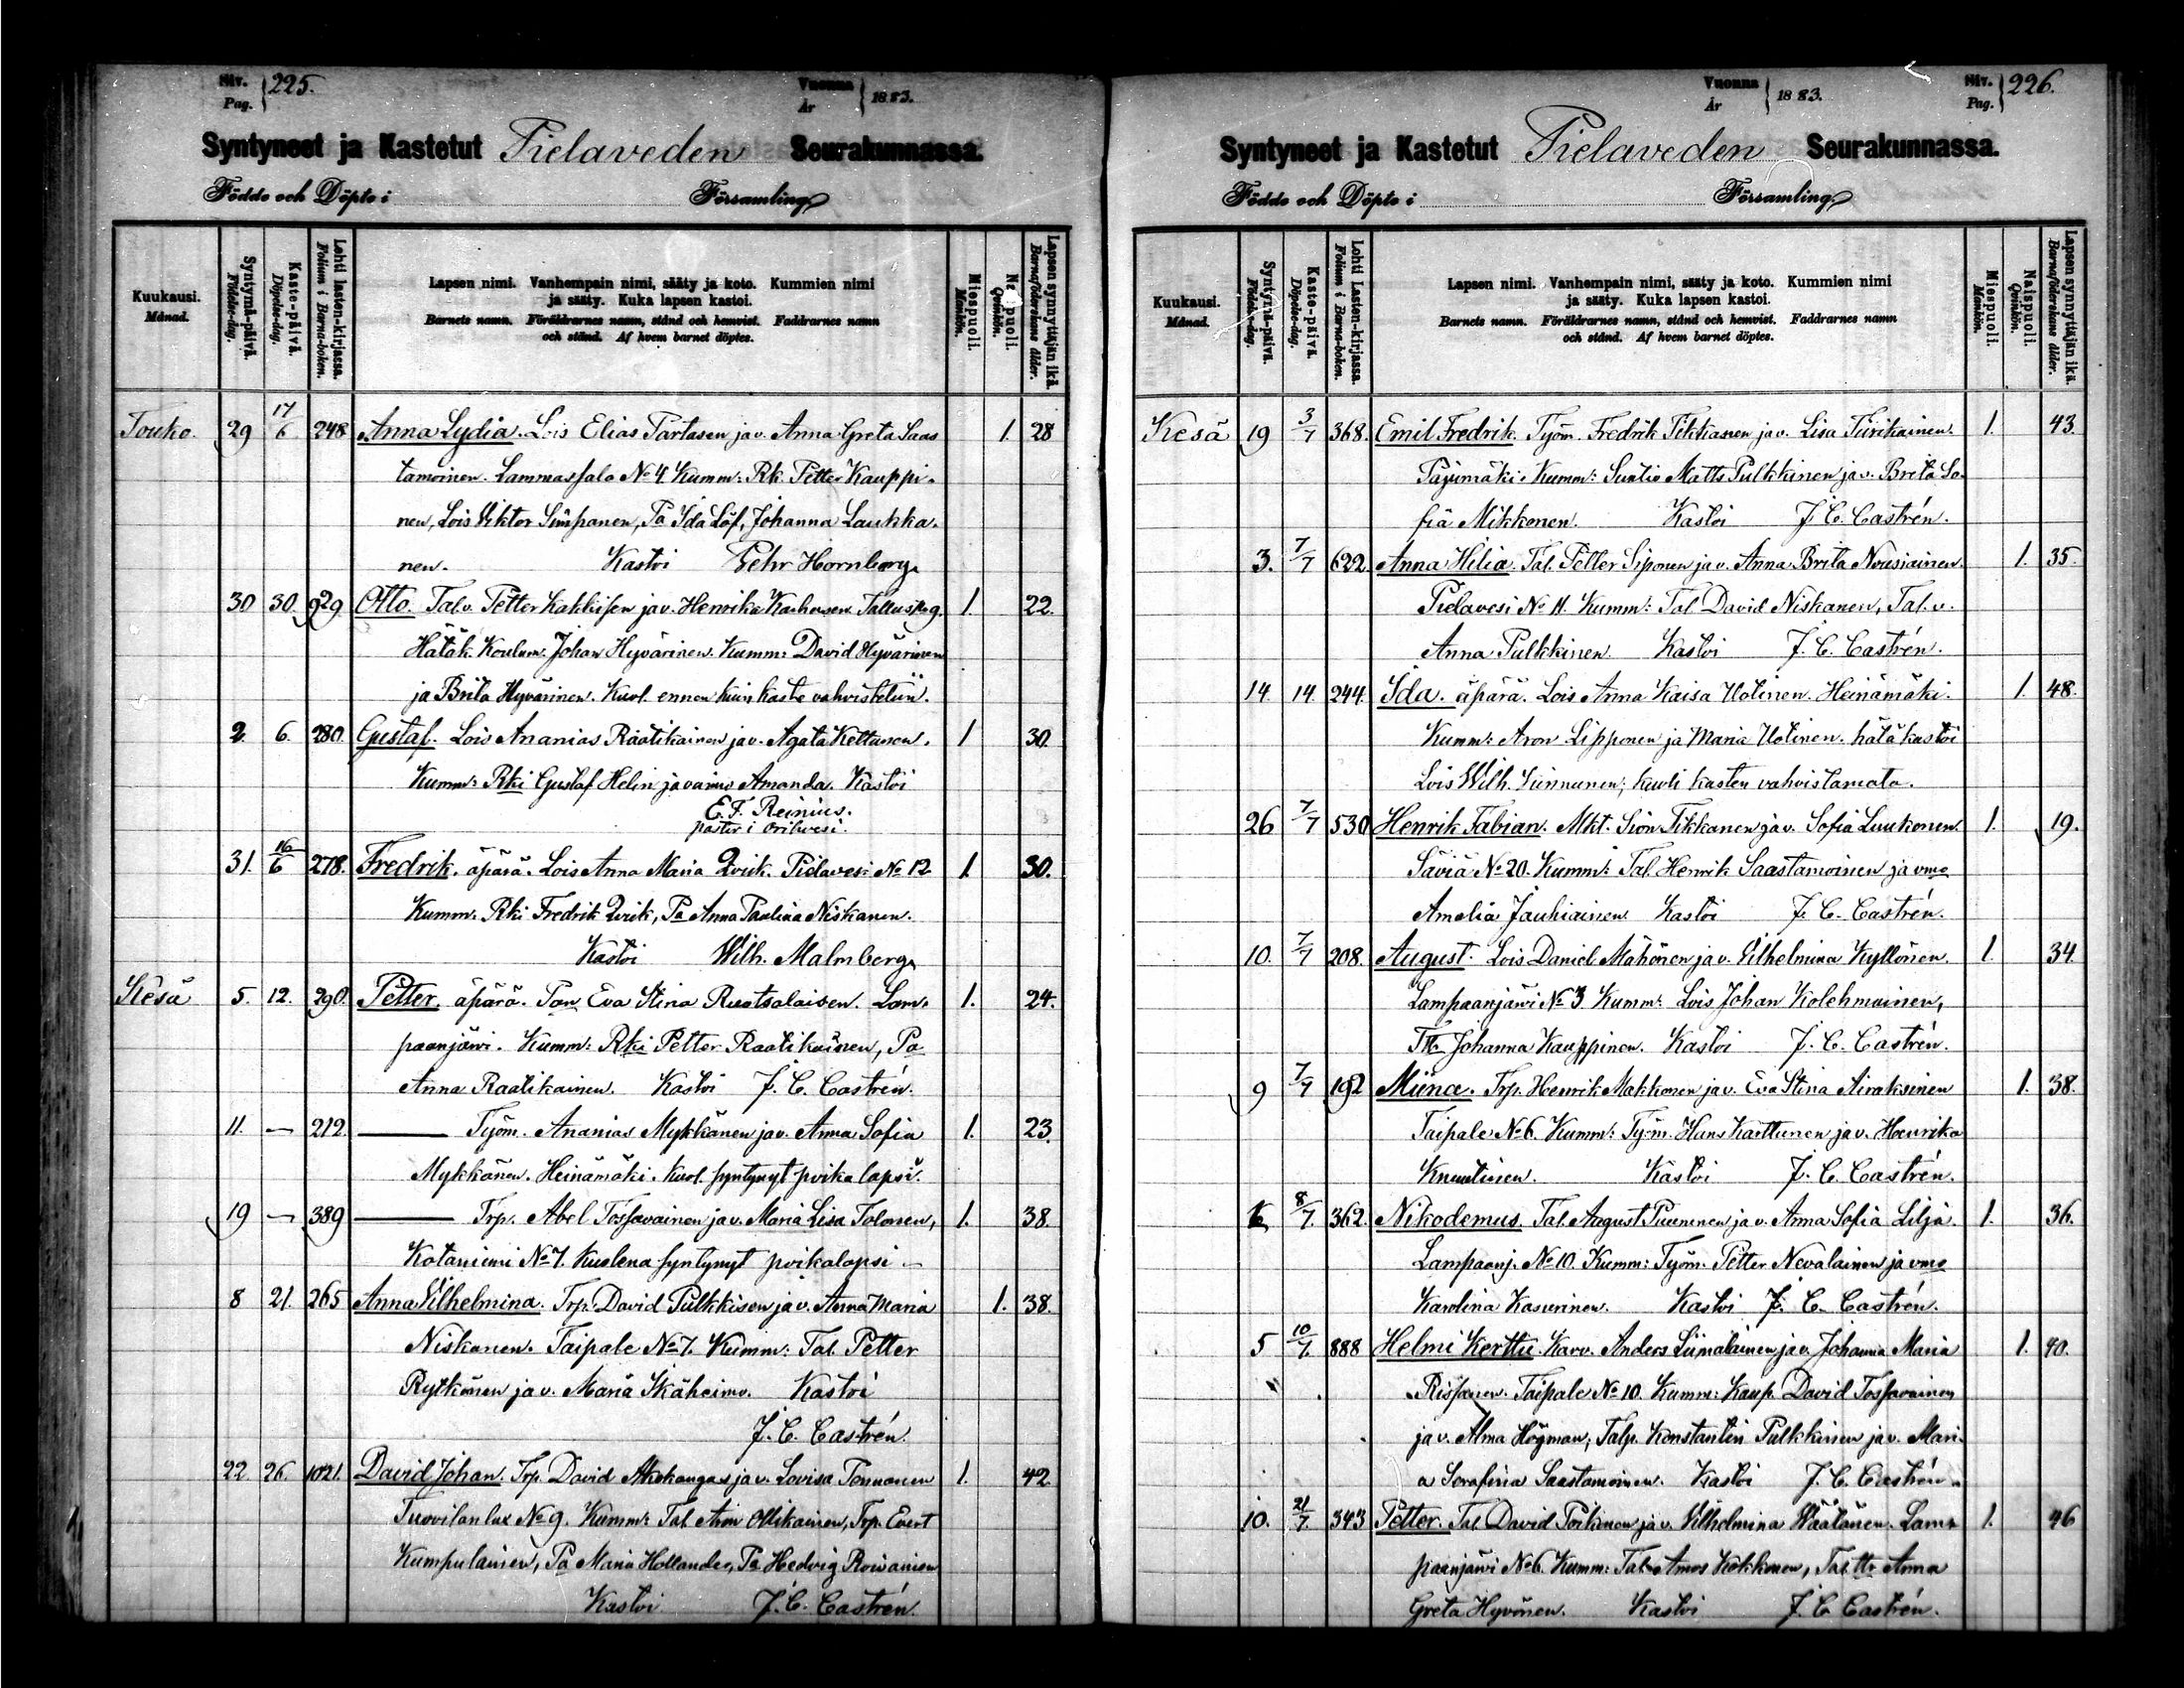 Siv. Pag. 225.
Vuonna År 1883.
Syntyneet ja Kastetut Pielaveden Seurakunnassa.
Födde och Döpte i Församling
Kuukausi. Månad.
Syntymä-päivä. Födelse-dag.
Kaste-päivä. Döpelse-dag.
Lehti lasten-kirjassa. Folium i Barna-boken.
Lapsen nimi. Vanhempain nimi, sääty ja koto. Kummien nimi
ja sääty. Kuka lapsen kastoi.
Barnets namn. Föräldrarnes namn, stånd och hemvist. Faddrarnes namn
och stånd. Af hvem barnet döptes.
Miespuoli. Mankön.
Qvinkön.
Lapsen synnyttäjän ikä. Barnaföderskans ålder.
Touko. 29 17/6 248 Anna Lydia. Lois Elias Tartasen ja v. Anna Greta Saas 1. 28
tamoinen. Lammassalo No 4 Kumm: Rk. Petter Kauppi-
nen, Lois Viktor Simpanen, Pa Ida Löf, Johanna Laukka-
nen. Kastoi Pehr Hornborg
30 30. 929. Otto. Tal.v. Petter Kakkisen ja v. Henrika Karhusen 1. 22.
Hätäk. Koulum. Johan Hyvärinen. Kumm: David Hyvärinen
ja Brita Hyvärinen. Kuol. ennen kuin kaste vahvistetiin.
2. 6. 280. Gustaf. Lois Ananias Raatikainen ja v. Agata Kettunen. 1 30.
Kumm: Rki Gustaf Helin ja vaimo Amanda. Kastoi
E. F. Reinius.
pastor i Orihvesi.
31. 16/6 278. Fredrik. äpärä. Lois Anna Maria Qvick. Pielavesi No 12 1. 30.
Kumm. Rki Fredrik Qvick, Pa Anna Paulina Niskanen.
Kastoi Wilh. Malmberg
Kesä 5. 12. 290. Petter. äpärä. Pan Eva Stina Ruotsalaisen. Lam- 1. 24.
paanjärvi. Kumm: Rki Petter Raatikainen, Pa
Anna Raatikainen. Kastoi J. C. Castrén.
11. — 212. — Työm. Ananias Mykkänen ja v. Anna Sofia 1. 23.
Mykkänen. Heinämäki. Kuol. syntynyt poika lapsi.
19 — 389 — Trp. Abel Tossavainen ja v. Maria Lisa Tolonen, 1. 38.
Kotaniemi No 7. Kuolena syntynyt poikalapsi.
8 21. 265 Anna Vilhelmina. Trp. David Pulkkisen ja v. Anna Maria 1. 38.
Niskanen. Taipale No 7. Kumm: Tal. Petter
Rytkönen ja v. Maria Skäheimo. Kastoi
J. C. Castrén.
22 26. 1021. David Johan. Trp. David Ahokangas ja v. Lovisa Tonnonen 1. 42
Tuovilanlax No 9. Kumm: Tal. Aron Ollikainen, Trp. Evert
Kumpulainen, Pa Maria Hollander, Pa Hedvig Roivainen
Kastoi J. C. Castrén.
Siv. Pag. 226.
Vuonna År 1883.
Syntyneet ja Kastetut Pielaveden Seurakunnassa.
Födde och Döpte i Församling
Kuukausi. Månad.
Syntymä-päivä. Födelse-dag.
Kaste-päivä. Döpelse-dag.
Lehti Lasten-kirjassa. Folium i Barna-boken.
Lapsen nimi. Vanhempain nimi, sääty ja koto. Kummien nimi
ja sääty. Kuka lapsen kastoi.
Barnets namn. Föräldrarnes namn, stånd och hemvist. Faddrarnes namn
och stånd. Af hvem barnet döptes.
Miespuoli. Mankön.
Naispuoli. Qvinkön.
Lapsen synnyttäjän ikä. Barnaföderskans ålder.
Kesä 19 3/7 368. Emil Fredrik. Työm. Fredrik Tikkanen ja v. Lisa Tiirikainen. 1. 43.
Pajumäki. Kumm: Suntio Matts Pulkkinen ja v. Brita So-
fia Mikkonen. Kastoi J. C. Castrén.
3. 7/7 622. Anna Hilia. Tal. Petter Siponen ja v. Anna Brita Nousiainen. 1. 35.
Pielavesi No 11. Kumm: Tal David Niskanen, Tal. v.
Anna Pulkkinen. Kastoi J. C. Castrén.
14. 14. 244. Ida. äpärä. Lois Anna Kaisa Utinen. Heinämäki. 1. 48.
Kumm: Aron Lipponen ja Maria Utinen. hätäkastoi
Lois Wilh. Kinnunen; kuoli kasten vahvistamata.
26 7/7 530 Henrik Fabian. Mkt. Sion Tikkanen ja v. Sofia Luukonen. 1. 19.
Säviä No 20. Kumm: Tal. Henrik Saastamoinen ja vmo
Amalia Jauhiainen. Kastoi J. C. Castrén.
10. 7/7 208. August. Lois Daniel Mähönen ja v. Vilhelmina Kyllönen. 1. 34
Lampaanjärvi No 3 Kumm: Lois Johan Kolehmainen,
Johanna Kauppinen. Kastoi J. C. Castrén.
9 7/7 192 Miina. Trp. Henrik Makkonen ja v. Eva Stina Airaksinen 1. 38.
Taipale No 6. Kumm: Työm. Hans Karttunen ja v. Henrika
Knuutinen. Kastoi J. C. Castrén.
6 8/7. 362. Nikodemus. Tal. August Puuninen ja v. Anna Sofia Lilja. 1. 36.
Lampaanj. No 10. Kumm: Työm. Petter Nevalainen ja vmo
Karolina Kasurinen. Kastoi J. C. Castrén.
5 10/7. 888 Helmi Kerttu. Karv. Anders Liimalainen ja v. Johanna Maria 1. 40.
Rissanen. Taipale No 10. Kumm: Kaup. David Tossavainen
ja v. Alma Högman, Talp. Konstantin Pulkkinen ja v. Mari-
a Serafina Saastamoinen. Kastoi J. C. Castrén.
10. 21/7. 343 Petter. Tal. David Poikonen ja v. Vilhelmina Väätänen. Lam- 1. 46
paanjärvi No 6. Kumm: Tal. Amos Kokkonen, Tal. tr. Anna
Greta Hyvönen. Kastoi J. C. Castrén.